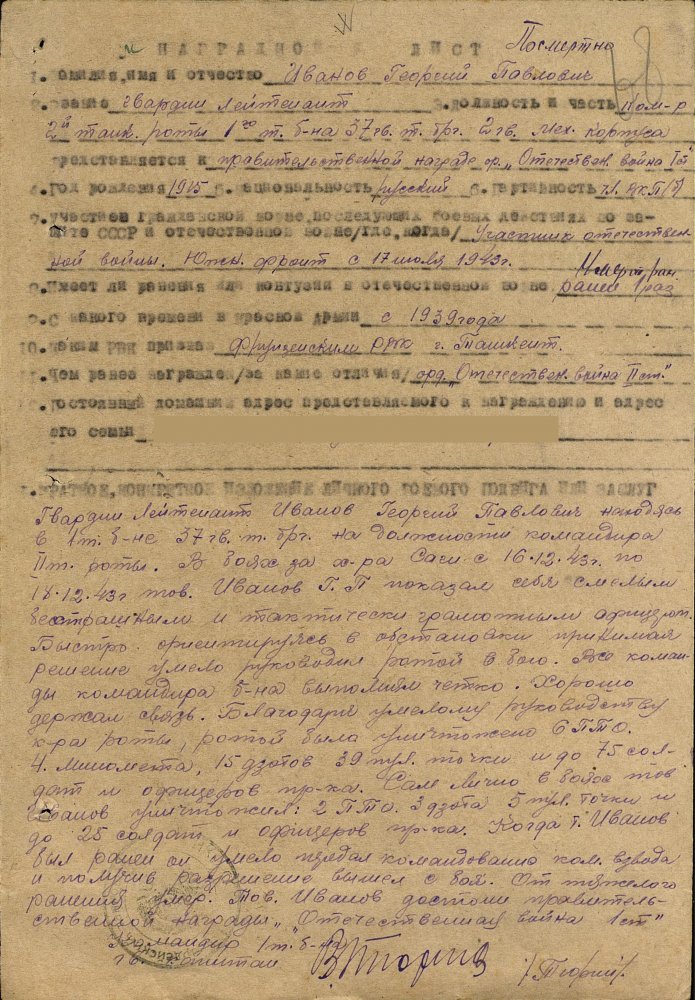 НАГРАДНОЙ ЛИСТ Посмертно
1. Фамилия, имя и отчество Иванов Георгий Павлович
2. Звание гвардии Лейтенант 3. Должность и часть Ком-р
2й танк. роты 1го т. б-на 37 гв. т. бр. 2 гв. мех. корпуса
представляется к правительственной награде ор. „Отечествен. война I ст"
4. Год рождения 1915 5. Национальность русский 6. Партийность чл. ВКП(б)
7. Участвовал гражданской войне, последующих боевых действиях по за-
щите СССР и отечественной войне/где, когда/ Участник отечествен-
ной войны. Южн. фронт с 17 июля 1943 г.
8. Имеет ли ранения или контузии в отечественной войне ранен 1 раз
9. С какого времени в красной армии с 1939 года
10. Каким РВК призван Фрунзенским РВК г. Ташкент.
11. Чем ранее награжден/за какие отличия/ орд. „Отечествен. война II ст."
12. Постоянный домашний адрес представляемого к награждению и адрес
его семьи
1. КРАТКОЕ, КОНКРЕТНОЕ ИЗЛОЖЕНИЕ ЛИЧНОГО БОЕВОГО ПОДВИГА ИЛИ ЗАСЛУГ
Гвардии Лейтенант Иванов Георгий Павлович находясь
в 1 т. б-не 37 гв. т. бр. на должности командира
II т. роты. В боях за х-ра Саси с 16.12.43 г. по
18.12.43 г тов. Иванов Г. П показал себя смелым
бесстрашным и тактически грамотным офицером.
Быстро ориентируясь в обстановки принимая
решение умело руководил ротой в бою. Все коман-
ды командира б-на выполнял четко. Хорошо
держал связь. Благодаря умелому руководству
к-ра роты, ротой была уничтожено 6 ПТО.
4. миномета, 15 дзотов 39 пул. точки и до 75 сол-
дат и офицеров пр-ка. Сам лично в боях тов
Иванов уничтожил: 2 ПТО. 3 дзота 5 пул. точки и
до 25 солдат и офицеров пр-ка. Когда т. Иванов
был ранен он умело передал командованию ком. взвода
и получив разрешение вышел с боя. От тяжелого
ранения умер. Тов. Иванов достоин правитель-
ственной награды „Отечественная война 1 ст"
Командир 1 т. б-на
гв. капитан